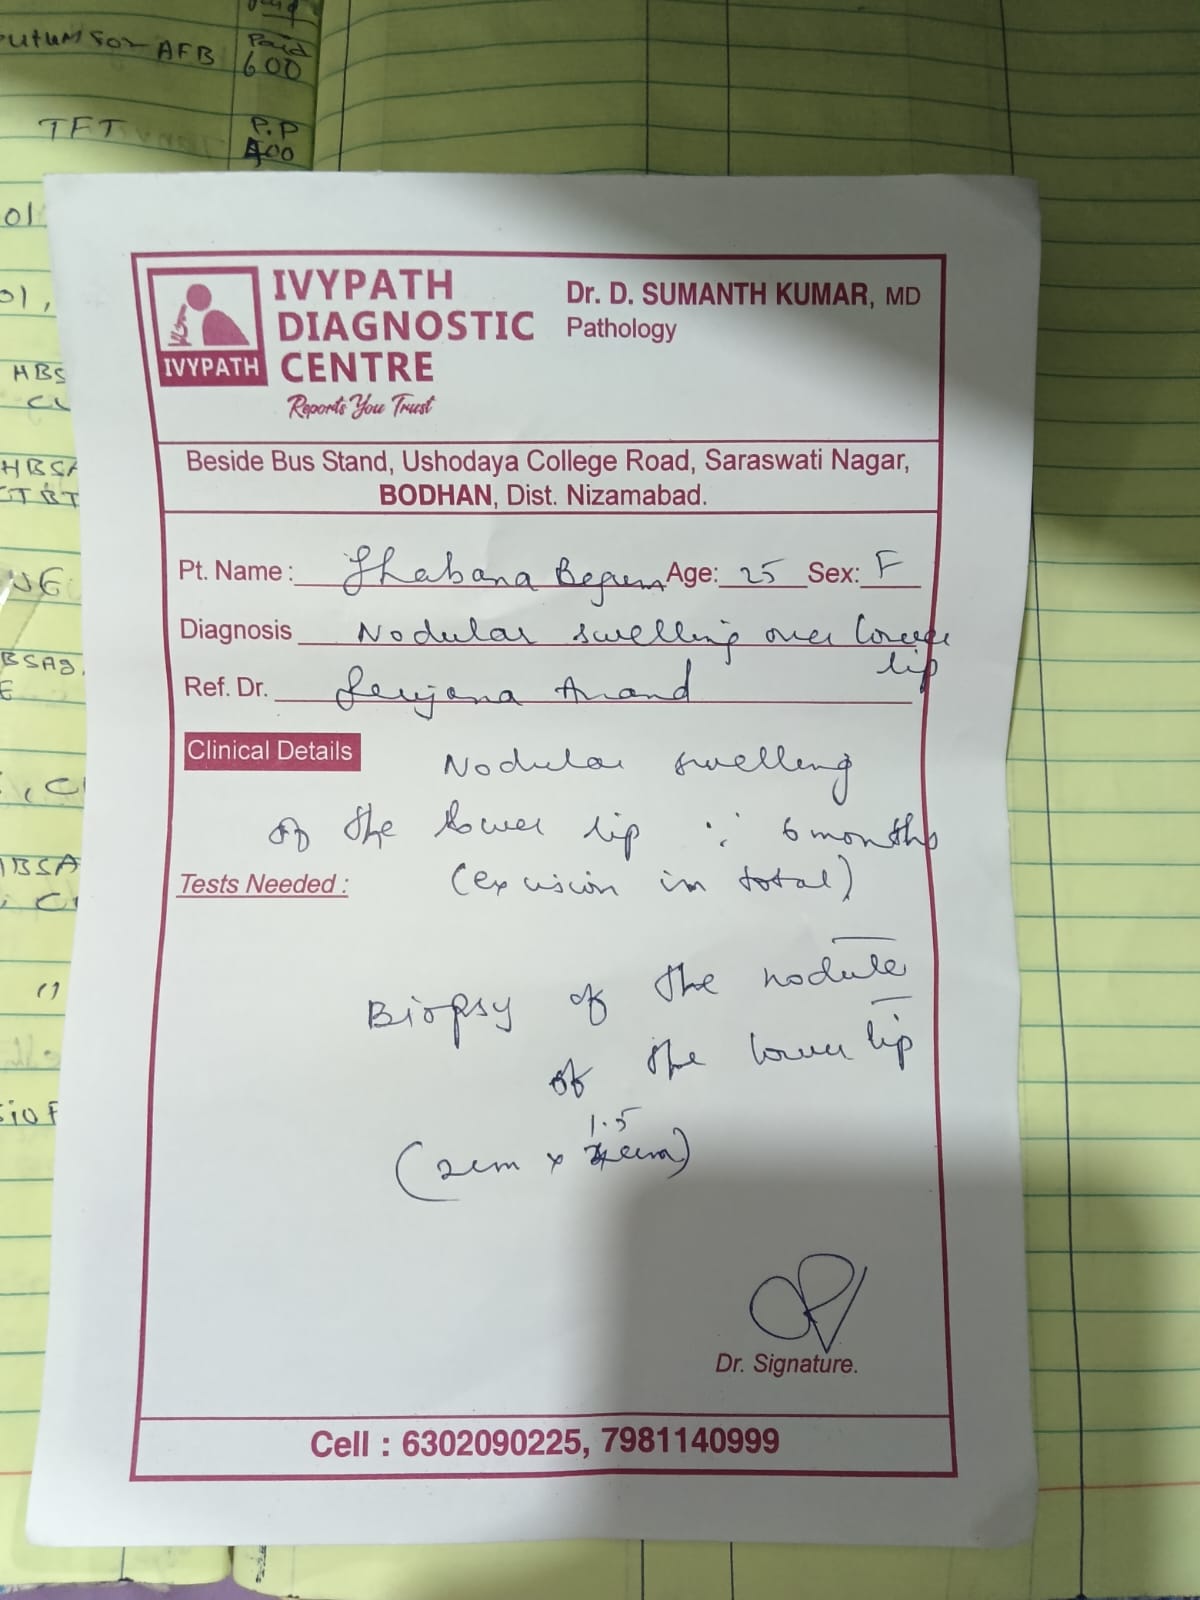 AFB
Paid
600
TFT
P.P
IVYPATH
IVYPATH
DIAGNOSTIC
CENTRE
Reports You Trust
Dr. D. SUMANTH KUMAR, MD
Pathology
Beside Bus Stand, Ushodaya College Road, Saraswati Nagar,
BODHAN, Dist. Nizamabad.
Pt. Name : Shabana Begum Age: 25 Sex: F
Diagnosis Nodular swelling over lower
lip
Ref. Dr. Anand
Clinical Details Nodular swelling
of the lower lip 6 months
Tests Needed : (excision in total)
Biopsy of the nodule
of the lower lip
1.5
(2cm x cm)
Dr. Signature.
Cell : 6302090225, 7981140999